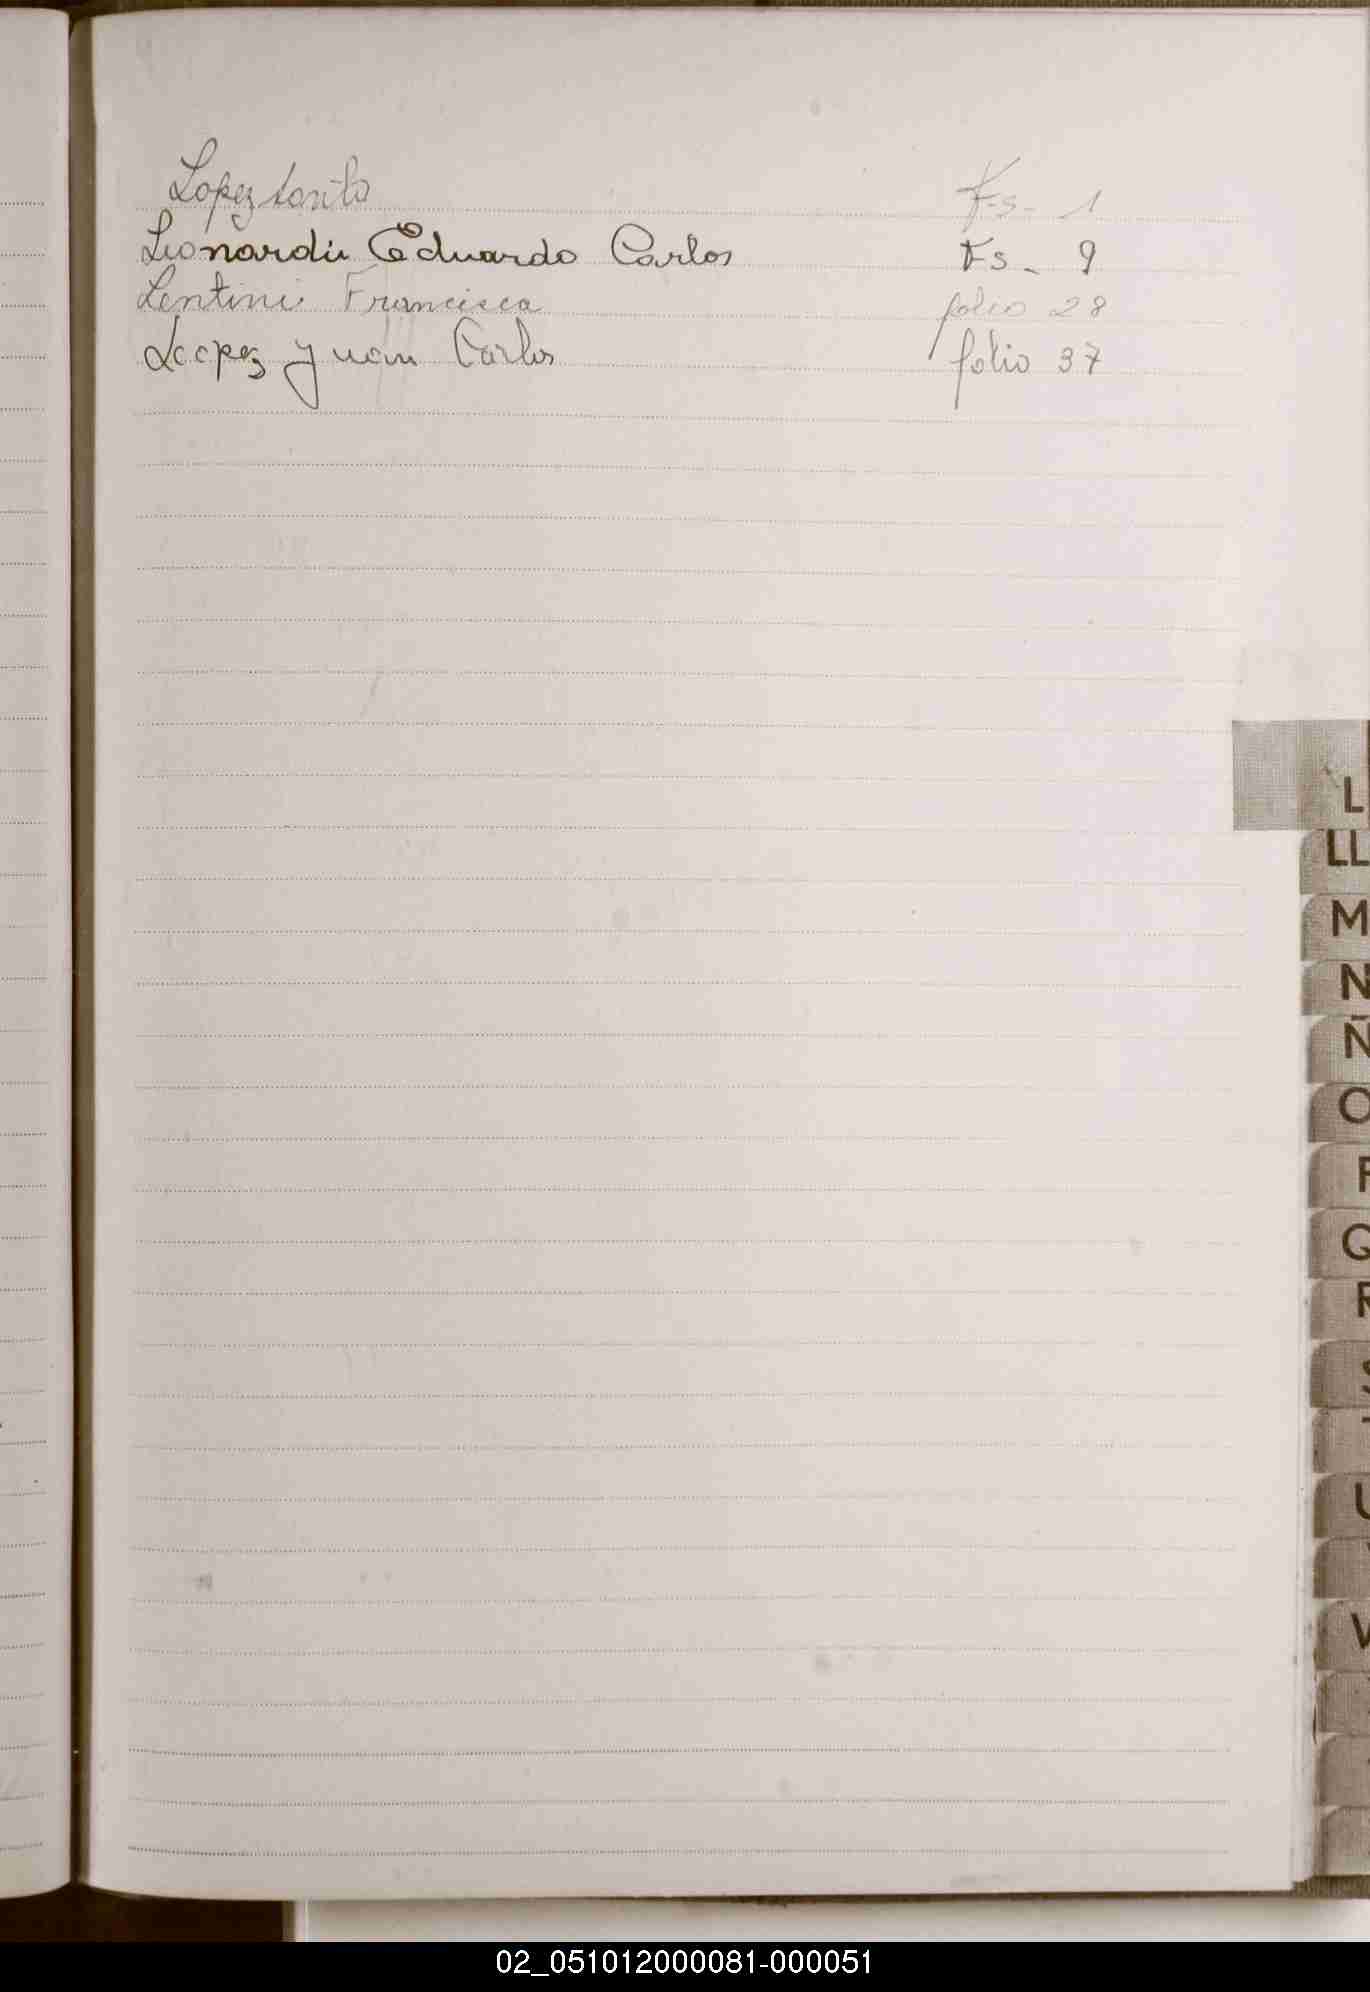 Lopez Santo Fs - 1
Leonardi Eduardo Carlos Fs - 9
Lentini Francisca folio 28
Lopez Juan Carlos folio 37
L
LL
M
N
Ñ
O
P
Q
R
S
T
U
V
02_051012000081-000051